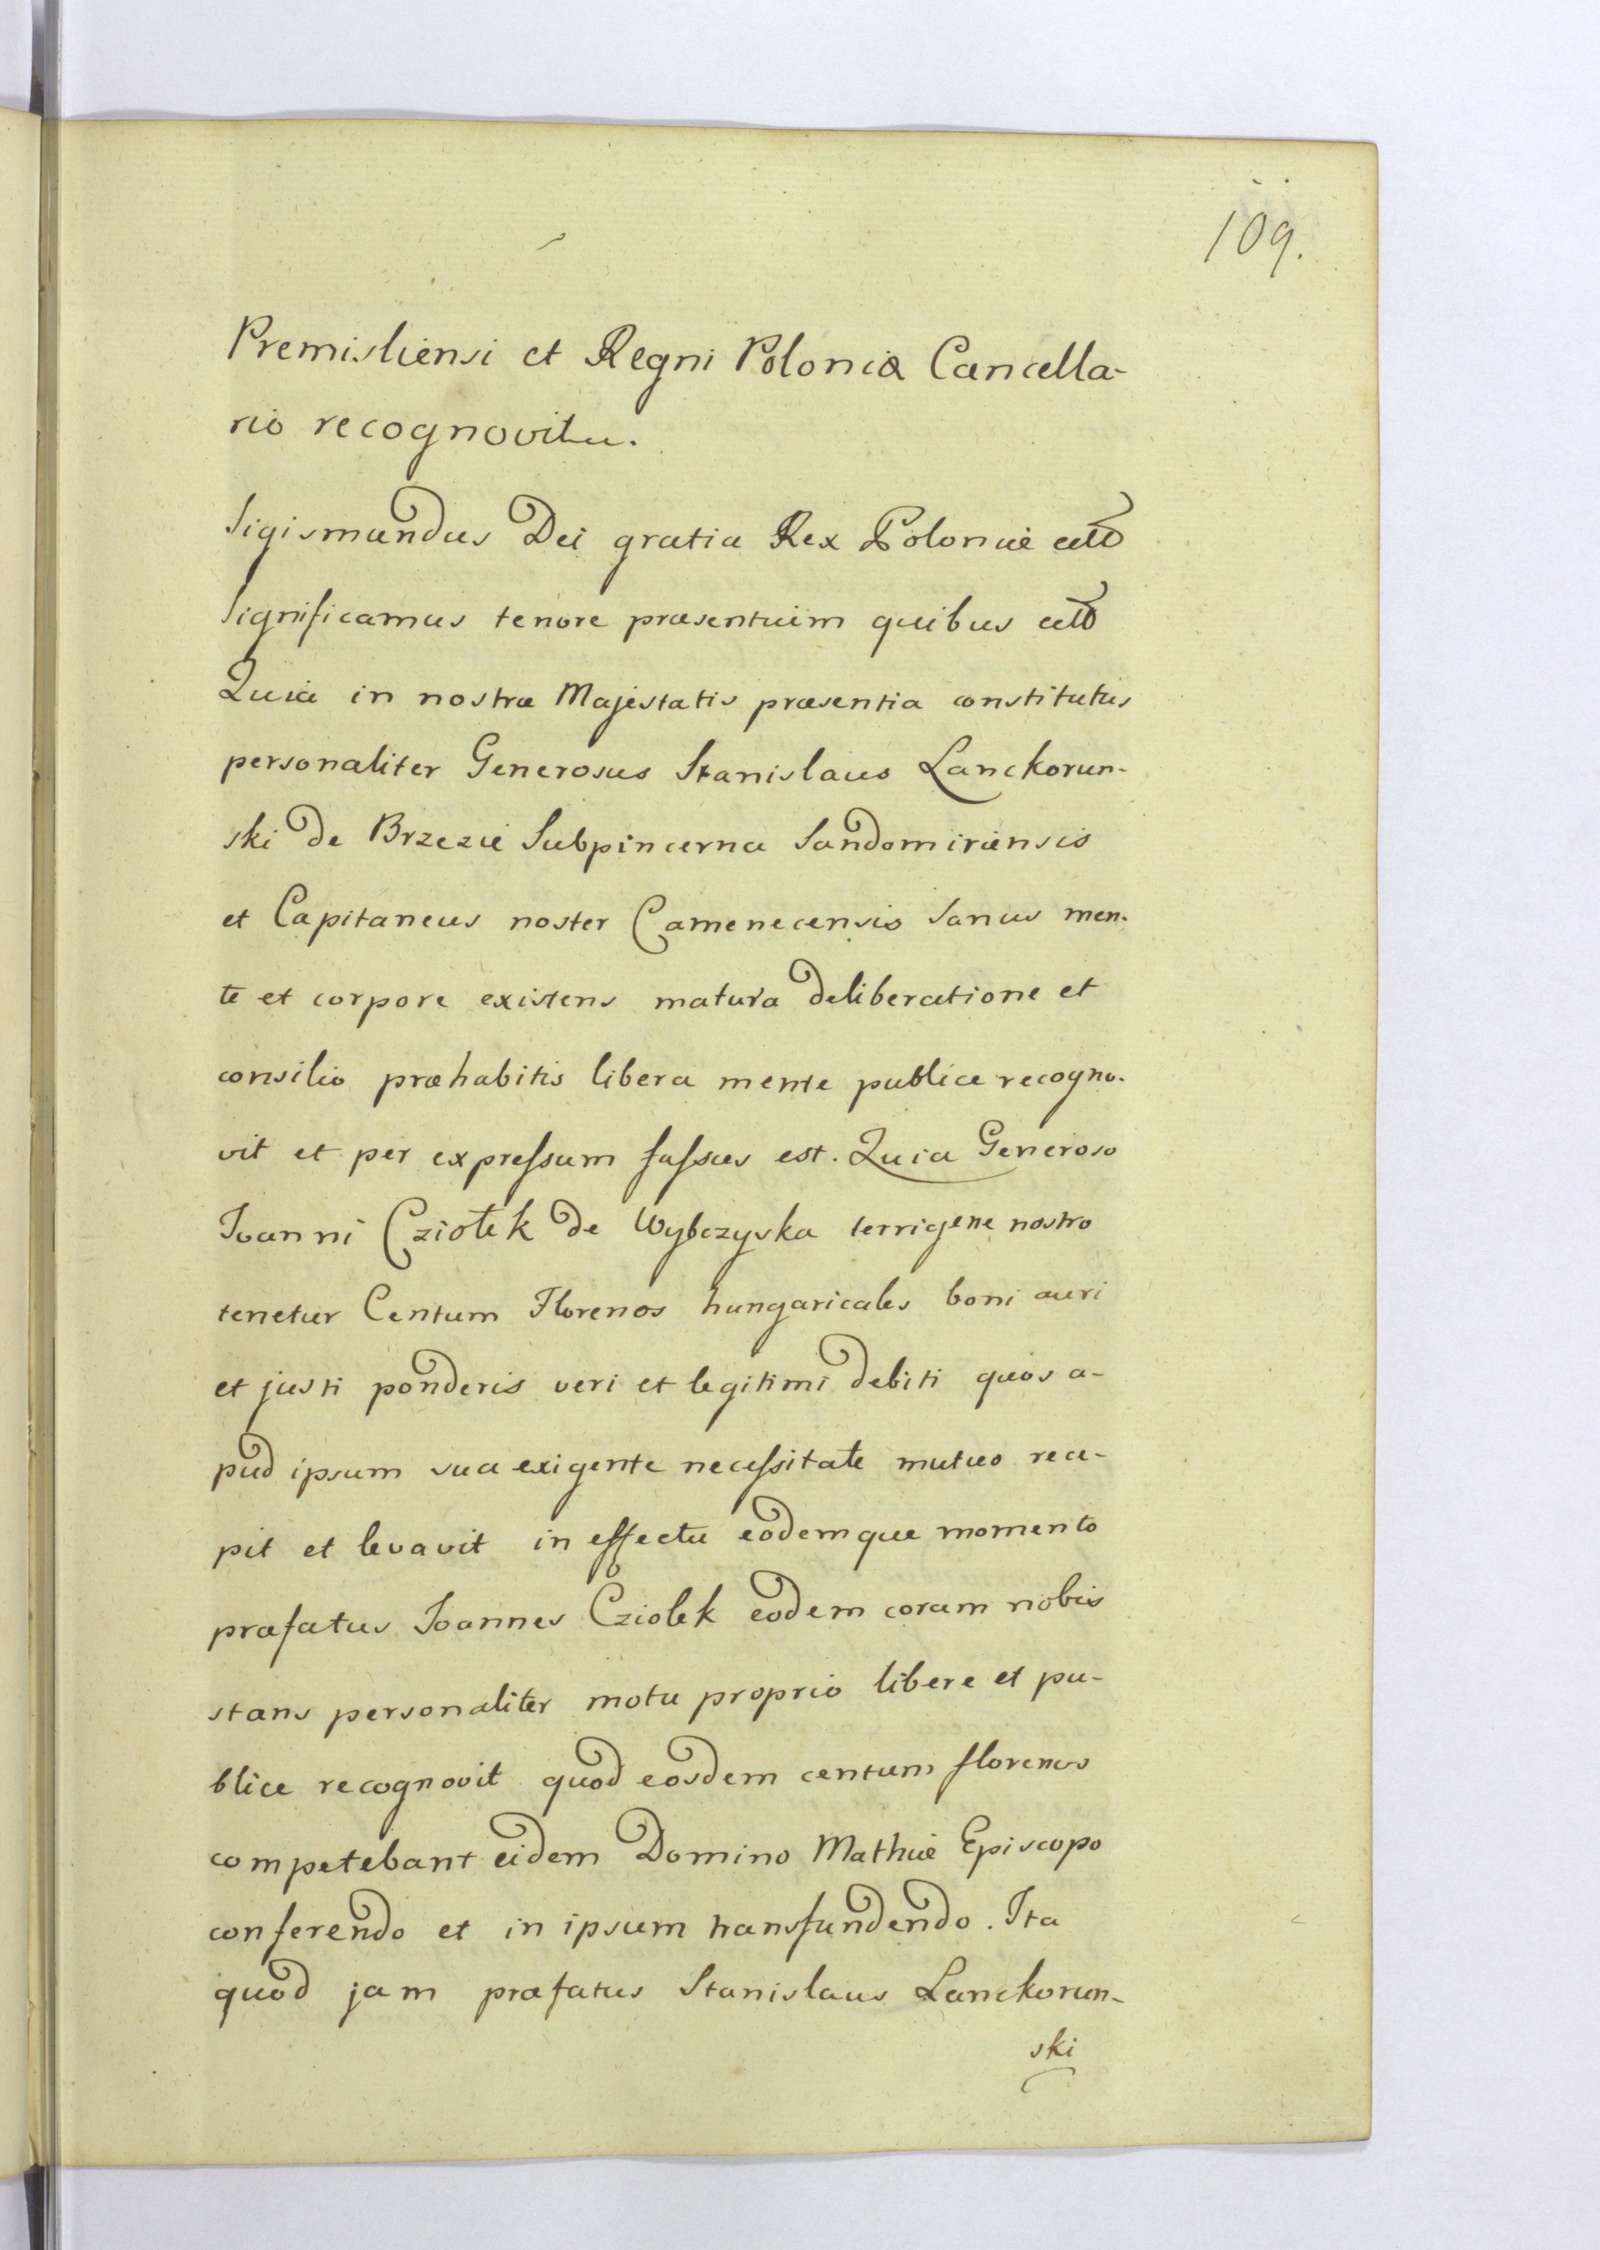 109.
Premisliensi et Regni Poloniæ Cancella-
rio recognovitur.
Sigismundus Dei gratia Rex Poloniæ etc
Significamus tenore præsentium quibus etc
Quia in nostræ Majestatis præsentia constitutus
personaliter Generosus Stanislaus Lanckorun-
ski de Brzezie Subpincerna Sandomiriensis
et Capitaneus noster Camenecensis Sanus men-
te et corpore existens matura deliberatione et
consilio præhabitis libera mente publice recogno-
vit et per expressum fassus est. Quia Generoso
Joanni Cziołek de Wybczyska terrigene nostro
tenetur Centum Florenos hungaricales boni auri
et justi ponderis veri et legitimi debiti quos a-
pud ipsum sua exigente necessitate mutuo rece-
pit et levavit in effectu eodemque momento
præfatus Joannes Cziolek eodem coram nobis
stans personaliter motu proprio libere et pu-
blice recognovit quod eosdem centum florenos
competebant eidem Domino Mathiæ Episcopo
conferendo et in ipsum transfundendo. Ita
quod jam præfatus Stanislaus Lanckorun-
ski